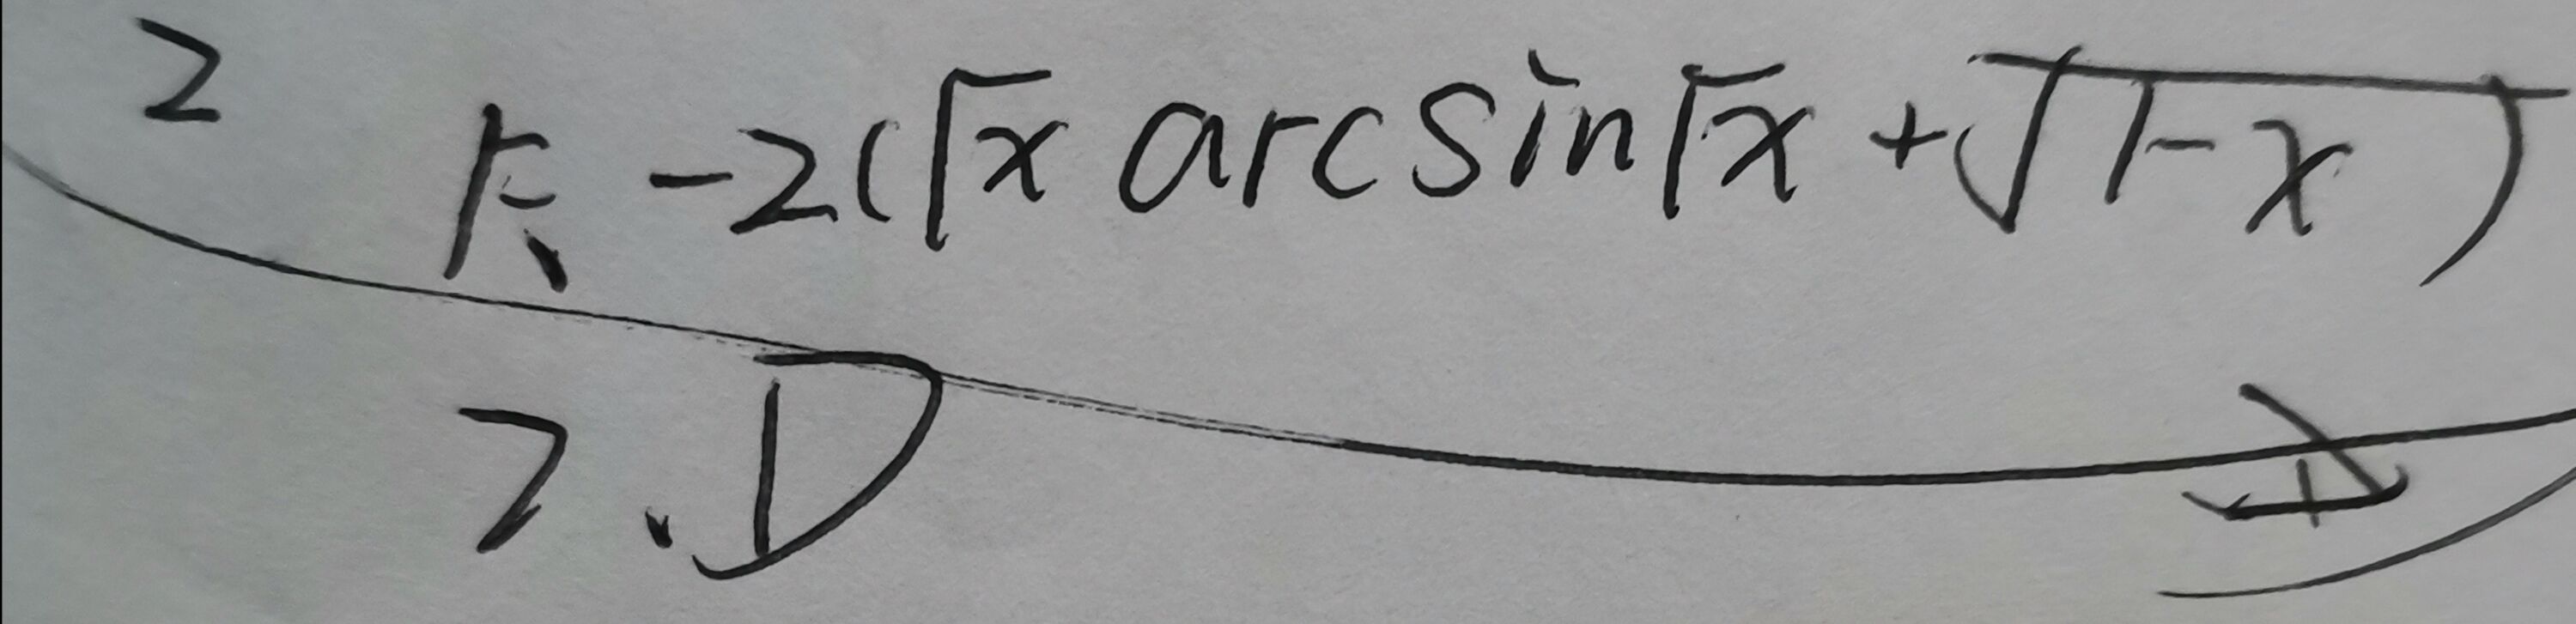 2
F. -2(√x arcsin√x + √1-x)
7.D